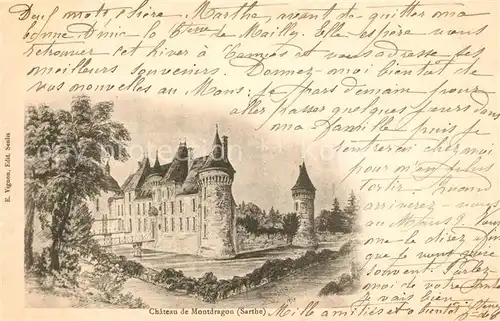 Deux mots, chère Marthe, avant de quitter ma
bonne amie la Ctesse de Mailly. Elle espère vous
retrouver cet hiver à Cannes et vous adresse ses
meilleurs souvenirs. Donnez-moi bientôt de
vos nouvelles au Mans: je pars demain pour
aller passer quelques jours dans
ma famille puis je
rentrerai chez moi
pour n'en plus
sortir. Quand
arriverez-vous
au Mans? Vous
me le direz pour
que je vous
souvent. Parlez
moi de votre
je vais bien
Mille amitiés et à bientôt
E. Vignon, Edit. Senlis
Château de Montdragon (Sarthe)